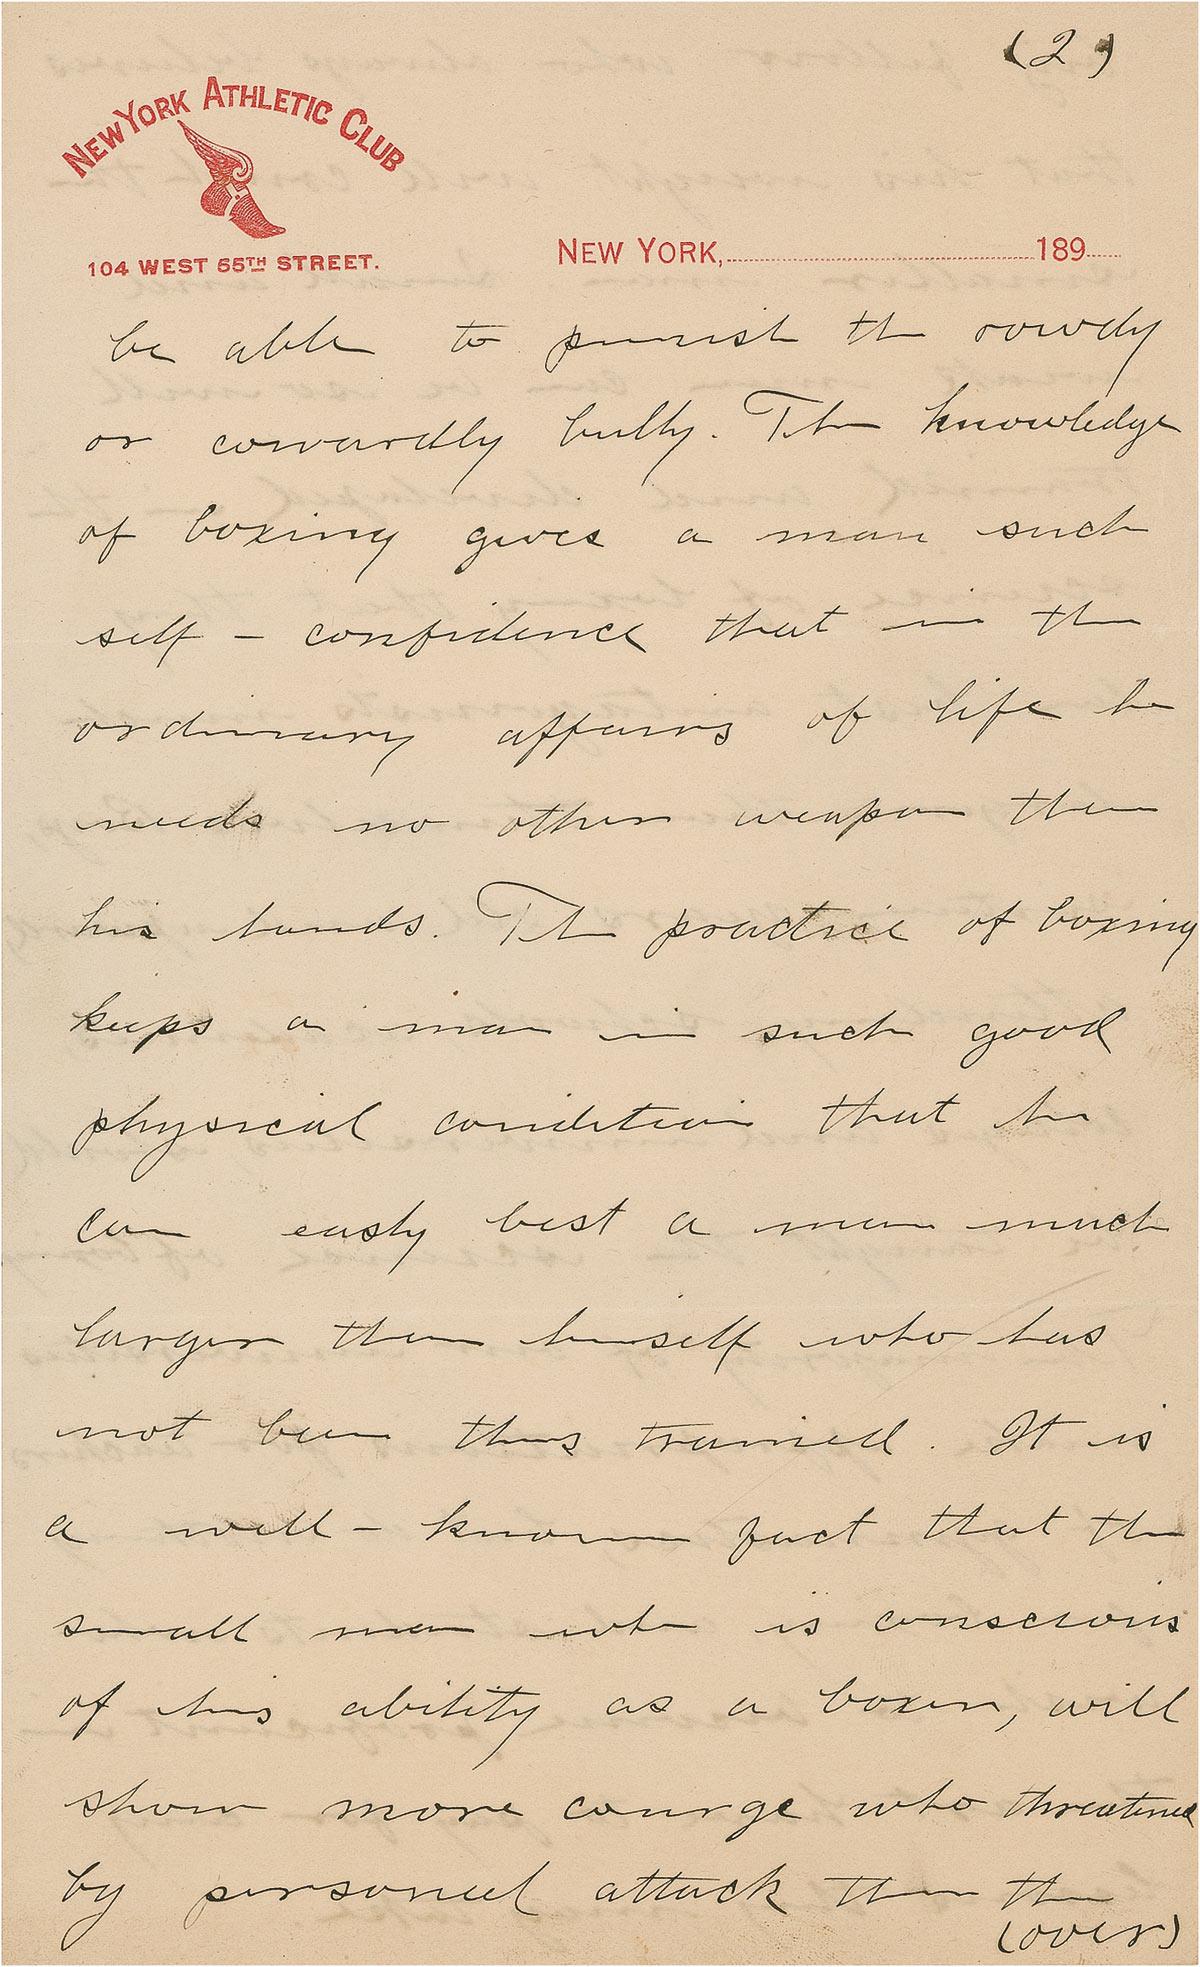 (2)
NEW YORK ATHLETIC CLUB
104 WEST 55TH STREET.
NEW YORK, 189
be able to punish the rowdy
or cowardly bully. The knowledge
of boxing gives a man such
self - confidence that in the
ordinary affairs of life he
needs no other weapon then
his hands. The practice of boxing
keeps a man in such good
physical condition that he
can easly best a man much
larger then himself who has
not been thus trained. It is
a well - known fact that the
small man who is conscious
of his ability as a boxer, will
show more courge who threatened
by personel attack then the
(over)